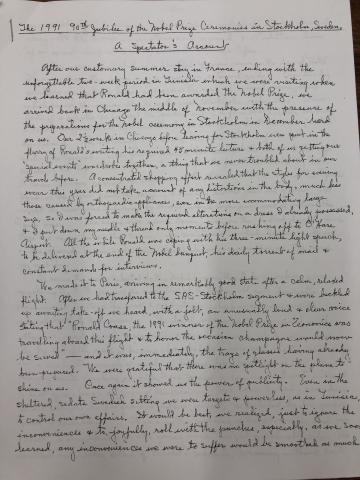 The 1991 90th Jubilee of the Nobel Prize Ceremonies in Stockholm, Sweden.
A Spectator's Account
After our customary summer stay in France, ending with the
unforgettable two-week period in Tunisia which we were visiting when
we learned that Ronald had been awarded the Nobel Prize, we
arrived back in Chicago the middle of November with the pressure of
the preparations for the Nobel ceremony in Stockholm in December hard
on us. Our 2½ weeks in Chicago before leaving for Stockholm were spent in the
flurry of Ronald's writing his required 45 minute lecture & both of us getting our
"special events" wardrobe together, a thing that we never troubled about in our
travels before. A concentrated shopping effort revealed that the styles for evening
wear this year did not take account of any distortions in the body, much less
those caused by orthopaedic appliances, even in the more accommodating large
sizes, so I was forced to make the required alterations on a dress I already possessed,
& I put down my needle & thread only moments before rushing off to O'Hare
Airport. All the while Ronald was coping with his three-minute light speech,
to be delivered at the end of the Nobel banquet, his daily torrent of mail &
constant demands for interviews.
We made it to Paris, arriving in remarkably good state after a calm, relaxed
flight. After we had transferred to the SAS-Stockholm segment & were buckled
up awaiting take-off we heard, with a jolt, an unusually loud & clear voice
stating that "Ronald Coase, the 1991 winner of the Nobel Prize in Economics was
travelling aboard this flight & to honor the occasion champagne would now
be served" — and it was, immediately, the trays of glasses having already
been prepared. We were grateful that there was no spotlight on the plane to
shine on us. Once again it showed us the power of publicity. Even in the
sheltered, sedate Swedish setting we were targets & powerless, as in Tunisia,
to control our own affairs. It would be best, we realized, just to ignore the
inconveniences & to, joyfully, roll with the punches, especially, as we soon
learned, any inconveniences we were to suffer would be smoothed as much